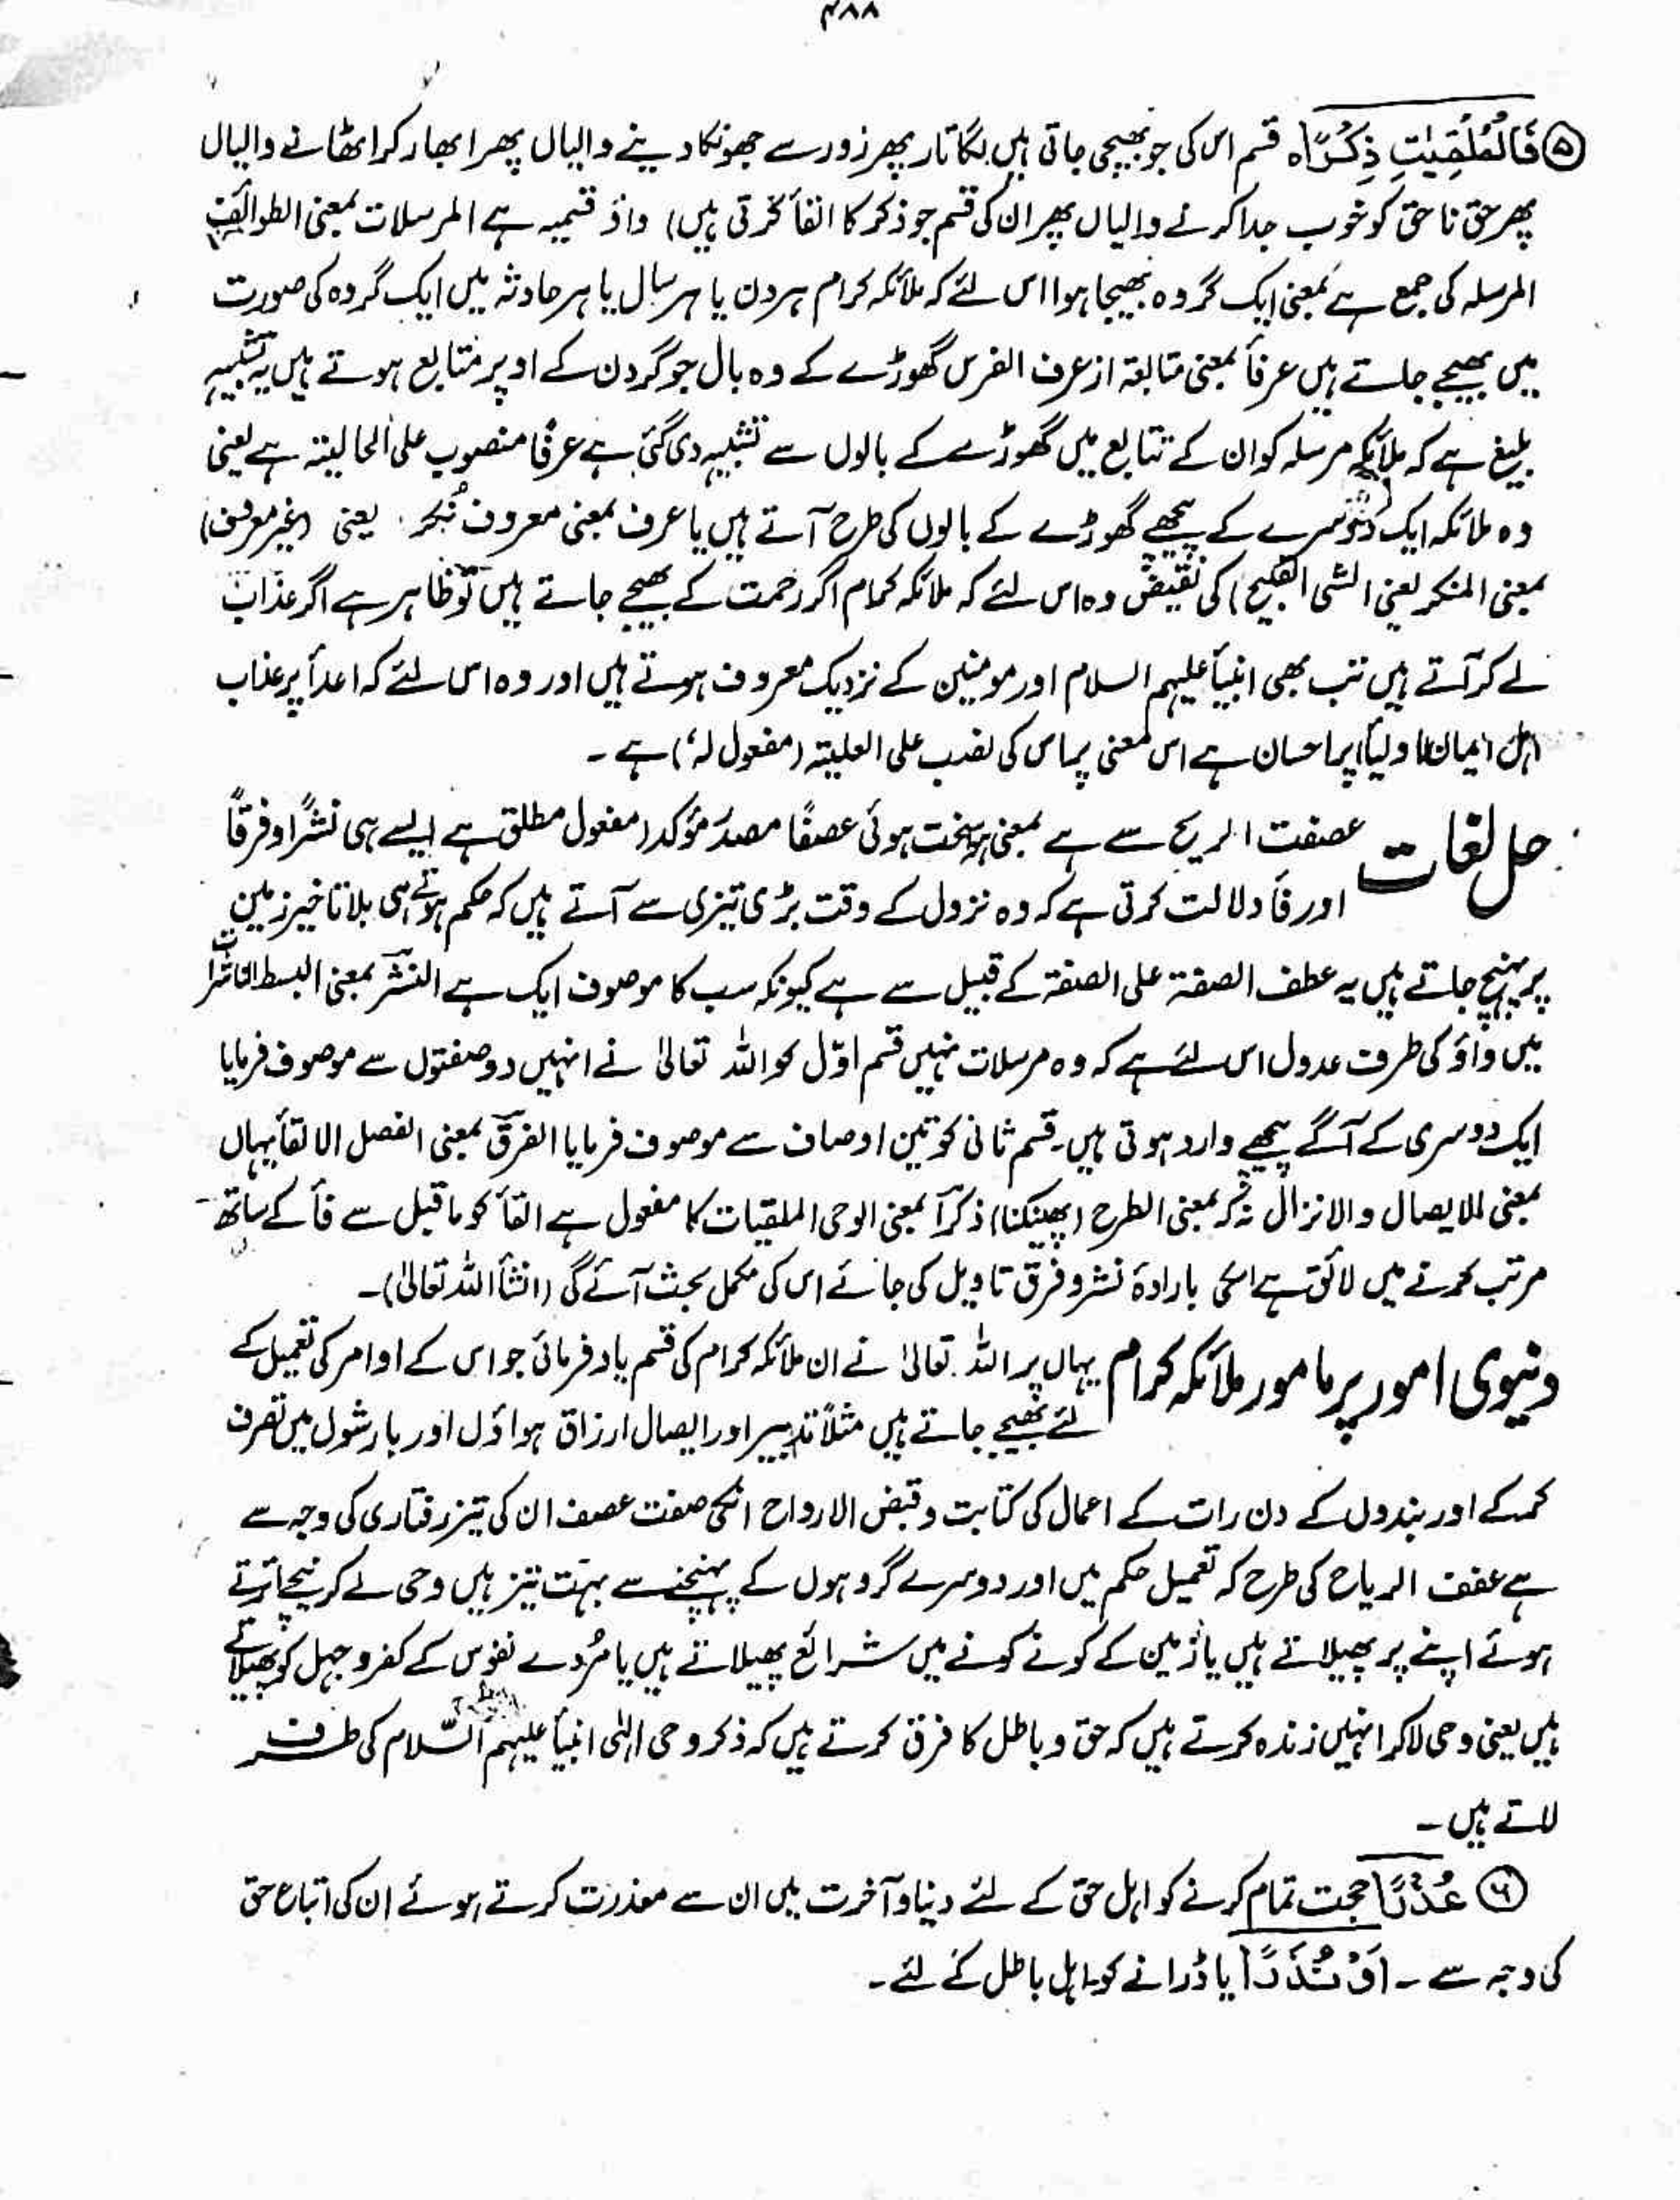 ۴۸۸
⑤ فَالْمُلْقِيٰتِ ذِكْرًا ہ قسم اس کی جو بھیجی جاتی ہیں لگاتار پھر زور سے جھونکا دینے والیاں پھر ابھار کر اٹھانے والیاں
پھر حق ناحق کو خوب جدا کرنے والیاں پھر ان کی قسم جو ذکر کا القأ کرتی ہیں) واؤ قسمیہ ہے المرسلات بمعنی الطوائف
المرسلہ کی جمع ہے بمعنی ایک گروہ بھیجا ہوا اس لئے کہ ملائکہ کرام ہر دن یا ہر سال یا ہر حادثہ میں ایک گروہ کی صورت
میں بھیجے جاتے ہیں عرفاً بمعنی متابعۃ از عرف الفرس گھوڑے کے وہ بال جو گردن کے اوپر متتابع ہوتے ہیں یہ تشبیہہ
بلیغ ہے کہ ملائکہ مرسلہ کو ان کے تتابع میں گھوڑے کے بالوں سے تشبیہہ دی گئی ہے عرفًا منصوب علی الحالیتہ ہے یعنی
وہ ملائکہ ایک دوسرے کے پیچھے گھوڑے کے بالوں کی طرح آتے ہیں یا عرف بمعنی معروف نُکر یعنی (غیر معروف)
بمعنی المنکر یعنی الشی القبیح) کی نقیض وہ اس لئے کہ ملائکہ کرام اگر رحمت کے بھیجے جاتے ہیں تو ظاہر ہے اگر عذاب
لے کر آتے ہیں تب بھی انبیأ علیہم السلام اور مومنین کے نزدیک معروف ہوتے ہیں اور وہ اس لئے کہ اعدأ پر عذاب
اہل ایمان (اولیأ) پر احسان ہے اس معنی پر اس کی نصب علی العلیتہ (مفعول لہ‘) ہے ۔
حل لغات عصفت الریح سے ہے بمعنی ہوا سخت ہوئی عصفًا مصدر مؤکد (مفعول مطلق ہے ایسے ہی نشرًا و فرقًا
اور فأ دلالت کرتی ہے کہ وہ نزول کے وقت بڑی تیزی سے آتے ہیں کہ حکم ہوتے ہی بلا تاخیر زمین
پر پہنچ جاتے ہیں یہ عطف الصفۃ علی الصفۃ کے قبیل سے ہے کیونکہ سب کا موصوف ایک ہے النشر بمعنی البسط الناشرات
میں واؤ کی طرف عدول اس لئے ہے کہ وہ مرسلات نہیں قسم اوّل کو اللہ تعالیٰ نے انہیں دو صفتوں سے موصوف فرمایا
ایک دوسری کے آگے پیچھے وارد ہوتی ہیں۔ قسم ثانی کو تین اوصاف سے موصوف فرمایا الفرق بمعنی الفصل الالقأ یہاں
بمعنی الایصال والانزال نہ کہ بمعنی الطرح (پھینکنا) ذکرًا بمعنی الوحی الملقیات کا مفعول ہے القأ کو ماقبل سے فأ کے ساتھ
مرتب کرنے میں لائق ہے اسکی بارادۂ نشر و فرق تاویل کی جائے اس کی مکمل بحث آئے گی (انشأ اللہ تعالیٰ)۔
دنیوی امور پر مامور ملائکہ کرام یہاں پر اللہ تعالیٰ نے ان ملائکہ کرام کی قسم یاد فرمائی جو اس کے اوامر کی تعمیل کے
لئے بھیجے جاتے ہیں مثلاً تدبیر اور ایصال ارزاق ہواؤں اور بارشوں میں تصرف
کرکے اور بندوں کے دن رات کے اعمال کی کتابت و قبض الارواح انکی صفت عصف ان کی تیز رفتاری کی وجہ سے
ہے عفف الریاح کی طرح کہ تعمیل حکم میں اور دوسرے گروہوں کے پہنچنے سے بہت تیز ہیں وحی لے کر نیچے اترتے
ہوئے اپنے پر پھیلاتے ہیں یا زمین کے کونے کونے میں شرائع پھیلاتے ہیں یا مُردے نفوس کے کفر و جہل کو پھیلاتے
ہیں یعنی وحی لاکر انہیں زندہ کرتے ہیں کہ حق و باطل کا فرق کرتے ہیں کہ ذکر وحی الٰہی انبیأ علیہم السّلام کی طرف
لاتے ہیں ۔
⑥ عُذْرًا حجت تمام کرنے کو اہل حق کے لئے دنیا و آخرت میں ان سے معذرت کرتے ہوئے ان کی اتباع حق
کی وجہ سے ۔ اَوْ نُذْرًا یا ڈرانے کو اہل باطل کے لئے ۔